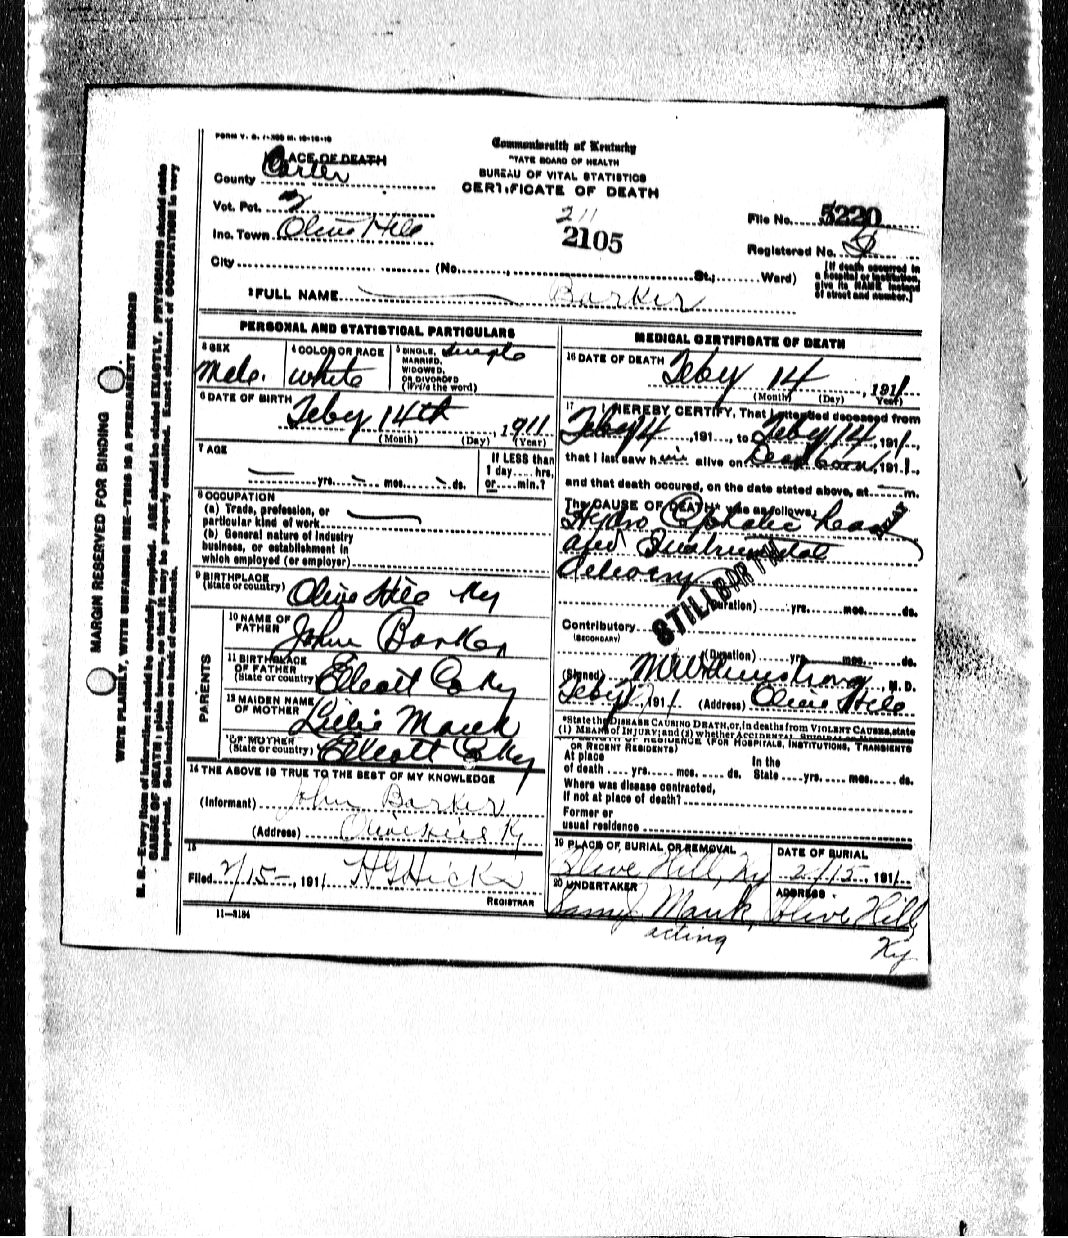 FORM V. S.
Commonwealth of Kentucky
TATE BOARD OF HEALTH
BUREAU OF VITAL STATISTICS
CERTIFICATE OF DEATH
ACE OF DEATH
County Carter
Vot. Pct. 2
Inc. Town Olive Hill
City (No. St.; Ward)
211
2105
File No. 5220
Registered No.
[If death occurred in
a hospital or institution,
give its NAME instead
of street and number.]
2 FULL NAME Barker
PERSONAL AND STATISTICAL PARTICULARS
3 SEX
Male.
4 COLOR OR RACE
White
5 SINGLE, Single
MARRIED,
WIDOWED,
OR DIVORCED
(Write the word)
6 DATE OF BIRTH
Feby 14th, 1911
(Month) (Day) (Year)
7 AGE
yrs. mos. ds.
If LESS than
1 day.... hrs.
or.... min.?
8 OCCUPATION
(a) Trade, profession, or
particular kind of work
(b) General nature of industry
business, or establishment in
which employed (or employer)
9 BIRTHPLACE
(State or country) Olive Hill Ky
PARENTS
10 NAME OF
FATHER John Barker
11 BIRTHPLACE
OF FATHER
(State or country) Elliott Co Ky
12 MAIDEN NAME
OF MOTHER Lillie Mauk
OF MOTHER
(State or country) Elliott Co Ky
14 THE ABOVE IS TRUE TO THE BEST OF MY KNOWLEDGE
(Informant) John Barker
(Address) Olive Hill Ky
15
Filed 2/15-, 1911 H G Hicks
REGISTRAR
11—3184
MEDICAL CERTIFICATE OF DEATH
16 DATE OF DEATH Feby 14, 1911
(Month) (Day) (Year)
17 I HEREBY CERTIFY, That I attended deceased from
Feby 14, 191..., to Feby 14, 1911.
that I last saw him alive on Dead born, 1911.,
and that death occured, on the date stated above, at m.
The CAUSE OF DEATH* was as follows:
Hydro Cephalic head
and Instrumental
delivery
STILLBIRTH
(Duration) yrs. mos. ds.
Contributory
(SECONDARY)
(Duration) yrs. mos. ds.
(Signed) M. D.
Feby, 1911 (Address) Olive Hill
*State the DISEASE CAUSING DEATH, or, in deaths from VIOLENT CAUSES, state
(1) MEANS OF INJURY; and (2) whether ACCIDENTAL
RESIDENCE (FOR HOSPITALS, INSTITUTIONS, TRANSIENTS
OR RECENT RESIDENTS)
At place In the
of death yrs. mos. ds. State yrs. mos. ds.
Where was disease contracted,
if not at place of death?
Former or
usual residence
19 PLACE OF BURIAL OR REMOVAL
Olive Hill, Ky
DATE OF BURIAL
2/15, 1911
20 UNDERTAKER
Mauk,
acting
ADDRESS
Olive Hill,
Ky
MARGIN RESERVED FOR BINDING
WRITE PLAINLY, WITH UNFADING INK—THIS IS A PERMANENT RECORD
N. B.—Every item of information should be carefully supplied. AGE should be stated EXACTLY. PHYSICIANS should state
CAUSE OF DEATH in plain terms, so that it may be properly classified. Exact statement of OCCUPATION is very
important. See instructions on back of certificate.